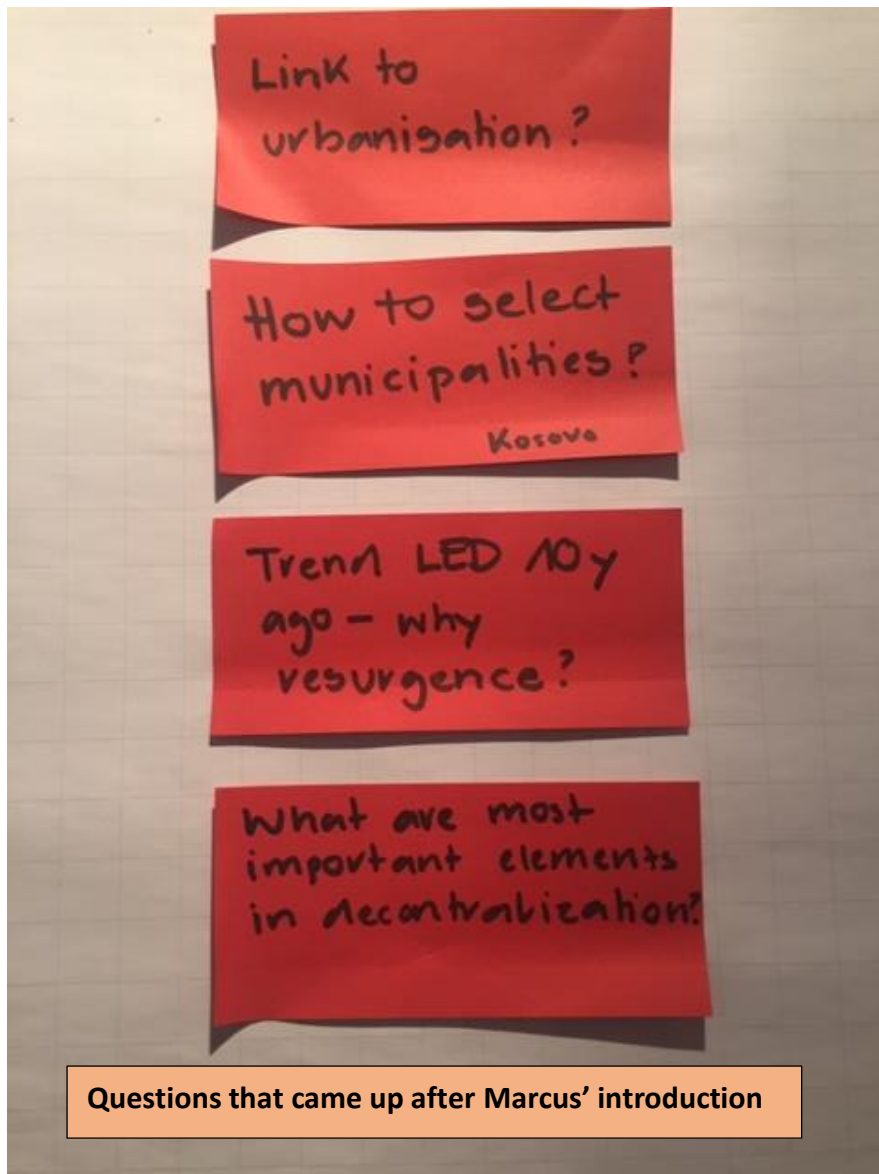 Link to
urbanisation?
How to select
municipalities?
Kosovo
Trend LED 10y
ago - why
resurgence?
What are most
important elements
in decontralization?
Questions that came up after Marcus' introduction